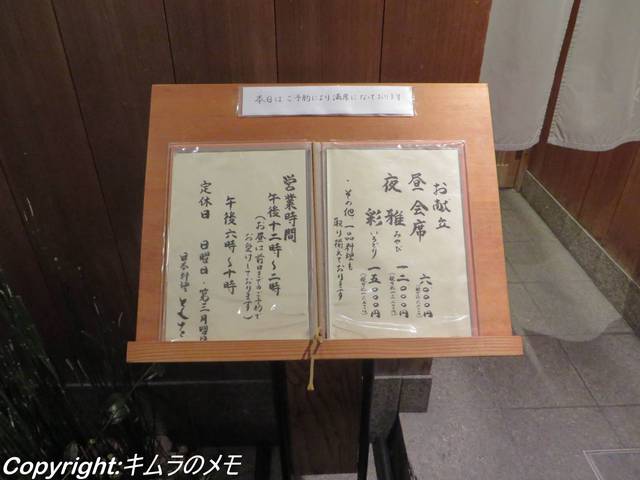 本日はご予約により満席になっております
お献立
昼 会席 六〇〇〇円
夜 雅 みやび 一二〇〇〇円
彩 いろどり 一五〇〇〇円
・その他 一品料理も
取り揃えております
営業時間
午後十二時〜二時
(お昼は前日までのご予約で
お受けしております)
午後六時〜十時
定休日 日曜日・第三月曜日
日本料理
Copyright:キムラのメモ